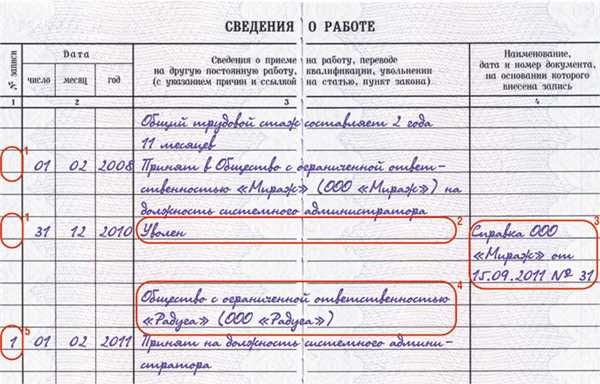 СВЕДЕНИЯ О РАБОТЕ
№ записи
Дата
число месяц год
Сведения о приеме на работу, переводе
на другую постоянную работу, квалификации, увольнении
(с указанием причин и ссылкой на статью, пункт закона)
Наименование,
дата и номер документа,
на основании которого
внесена запись
1 2 3 4
Общий трудовой стаж составляет 2 года
11 месяцев
1
01 02 2008 Принят в Общество с ограниченной ответ-
ственностью «Мираж» (ООО «Мираж») на
должность системного администратора
1 2 3
31 12 2010 Уволен Справка ООО
«Мираж» от
15.09.2011 № 31
4
Общество с ограниченной ответственностью
«Радуга» (ООО «Радуга»)
5
1 01 02 2011 Принят на должность системного админи-
стратора